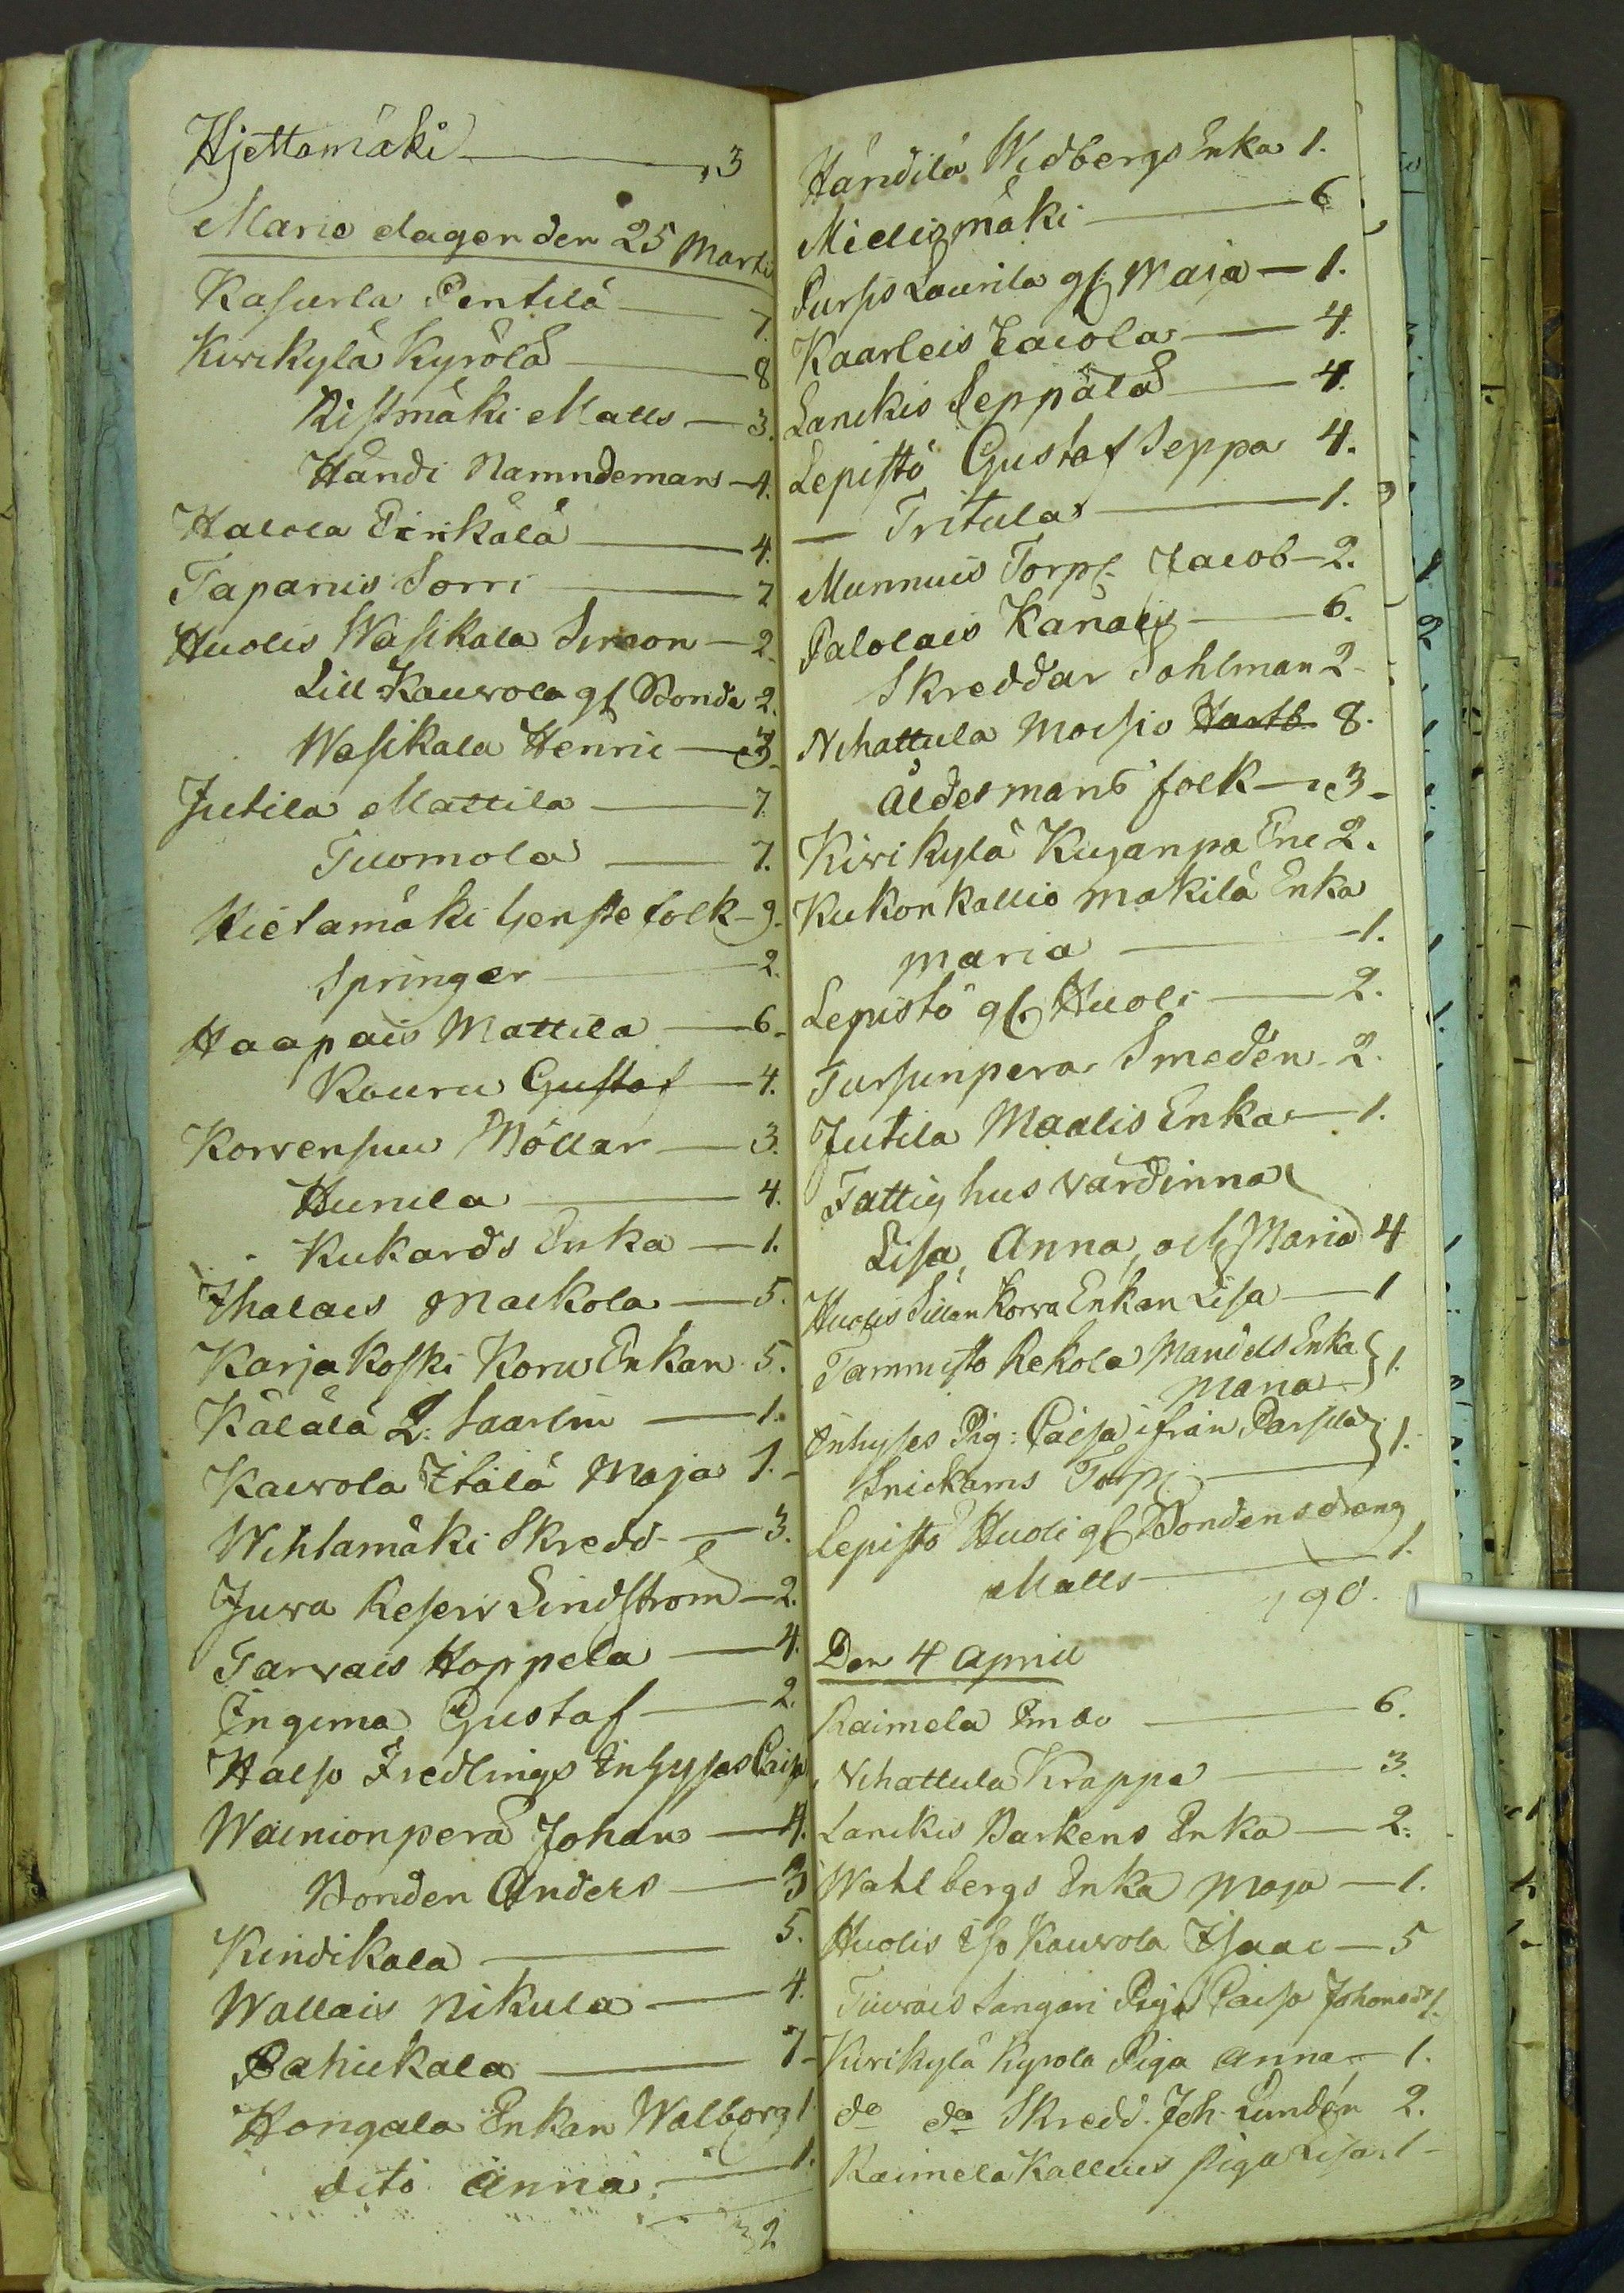 Hjettamäki — 3
Marie dagen den 25 Martii
Kasurla Pentilä — 7.
Kirikylä Kyrölä — 8
Ristmäki Matts — 3.
Händi Namndemans — 4.
Halola Pirikälä — 4.
Tapanis Sorri — 7
Huolis Wasikala Simon — 2.
Lill Kauvola gl Bonde 2.
Wasikala Henric — 3.
Jutila Mattila — 7.
Tuomola — 7.
Hietamäki herste folk — 9.
Springer — 2.
Haapais Mattila — 6.
Kouru Gustaf — 4.
Korvensuu Möllar — 3.
Hunila — 4.
Kukards Enka — 1.
Ihalais Markola — 5.
Karjakoski Koru Enkan 5.
Kälälä L: Saarlin — 1.
Kauvola Itälä Maja 1.
Wihtamäki Skredd — 3.
Juva Reserv Lindström — 2.
Tarvais Hoppela — 4.
Ingima Gustaf — 2.
Halso Fredlings Inhyses Caisa
Wainionperä Johan — 4.
Bonden Anders — 3
Kindikala — 5.
Wallais Nikula — 4.
Pahukala — 7
Hongala Enkan Walborg 1.
dito Anna — 1.
Händilä Widbergs Enka 1.
Mieligmäki — 6
Pursis Laurila gl: Maja — 1.
Kaarleis Eacola — 4.
Lanckis Seppälä — 4.
Lepistö Gustaf Seppa 4.
— Tritula — 1.
Munnuis Torp: Jacob — 2.
Palolais Kanais — 6.
Skreddar Sohlman 2
Nihattula Moisio Hartb 8.
Åldermans folk — 3
Kirikylä Kujanpä Enk 2.
Kukonkallio Makilä Enka
Maria — 1.
Lepistö gl. Huoli — 2.
Tursunpera Smeden 2.
Jutila Maalis Enka — 1.
Fattighus värdinna
Lisa, Anna, och Maria 4
Huolis Sillan Korva Enkan Lisa — 1
Tammisto Rekola Mandels Enka
Maria } 1.
Inhyses Pig: Caisa ifrån Parsila
Snickams Torp: — } 1.
Lepistö Huoli gl Bondens dräng
Matts — 1.
190.
Den 4 April
Raimela Endo — 6.
Nihattula Krappe — 3.
Lanckis Barkens Enka — 2.
Wahlbergs Enka Maja — 1.
Huolis Iso Kauvola Isaac — 5
Tiurais Sangari Piga Caisa Johansd 1.
Kirikylä Kyrola Piga Anna — 1.
do do Skredd. Joh. Lundén 2.
Raimela Kallius Piga Lisa 1